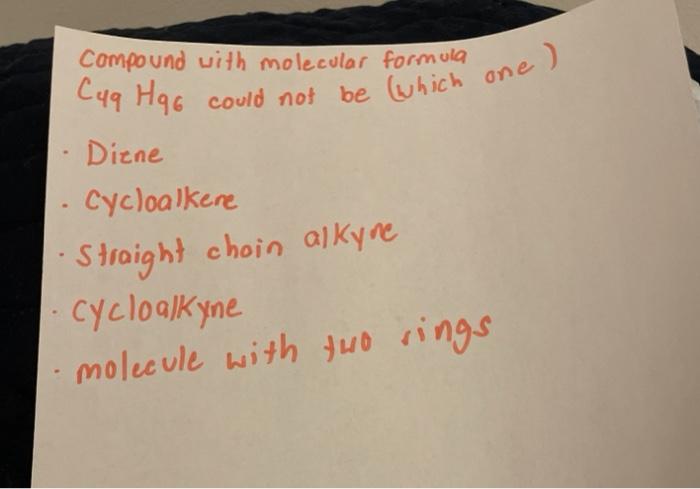 Compound with molecular formula
C49 H96 could not be (which one)
· Diene
· Cycloalkene
· Straight chain alkyne
· cycloalkyne
· molecule with two rings